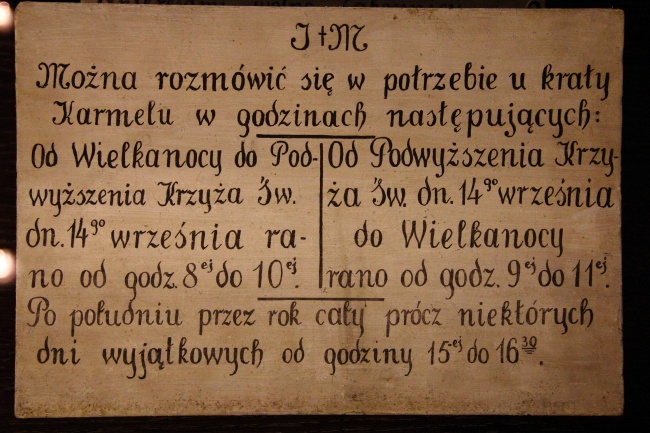 J†M
Można rozmówić się w potrzebie u kraty
Karmelu w godzinach następujących:
Od Wielkanocy do Pod-
wyższenia Krzyża Św.
dn. 14go września ra-
no od godz. 8ej do 10ej.
Od Podwyższenia Krzy-
ża Św. dn. 14go września
do Wielkanocy
rano od godz. 9ej do 11ej.
Po południu przez rok cały prócz niektórych
dni wyjątkowych od godziny 15ej do 16 30.